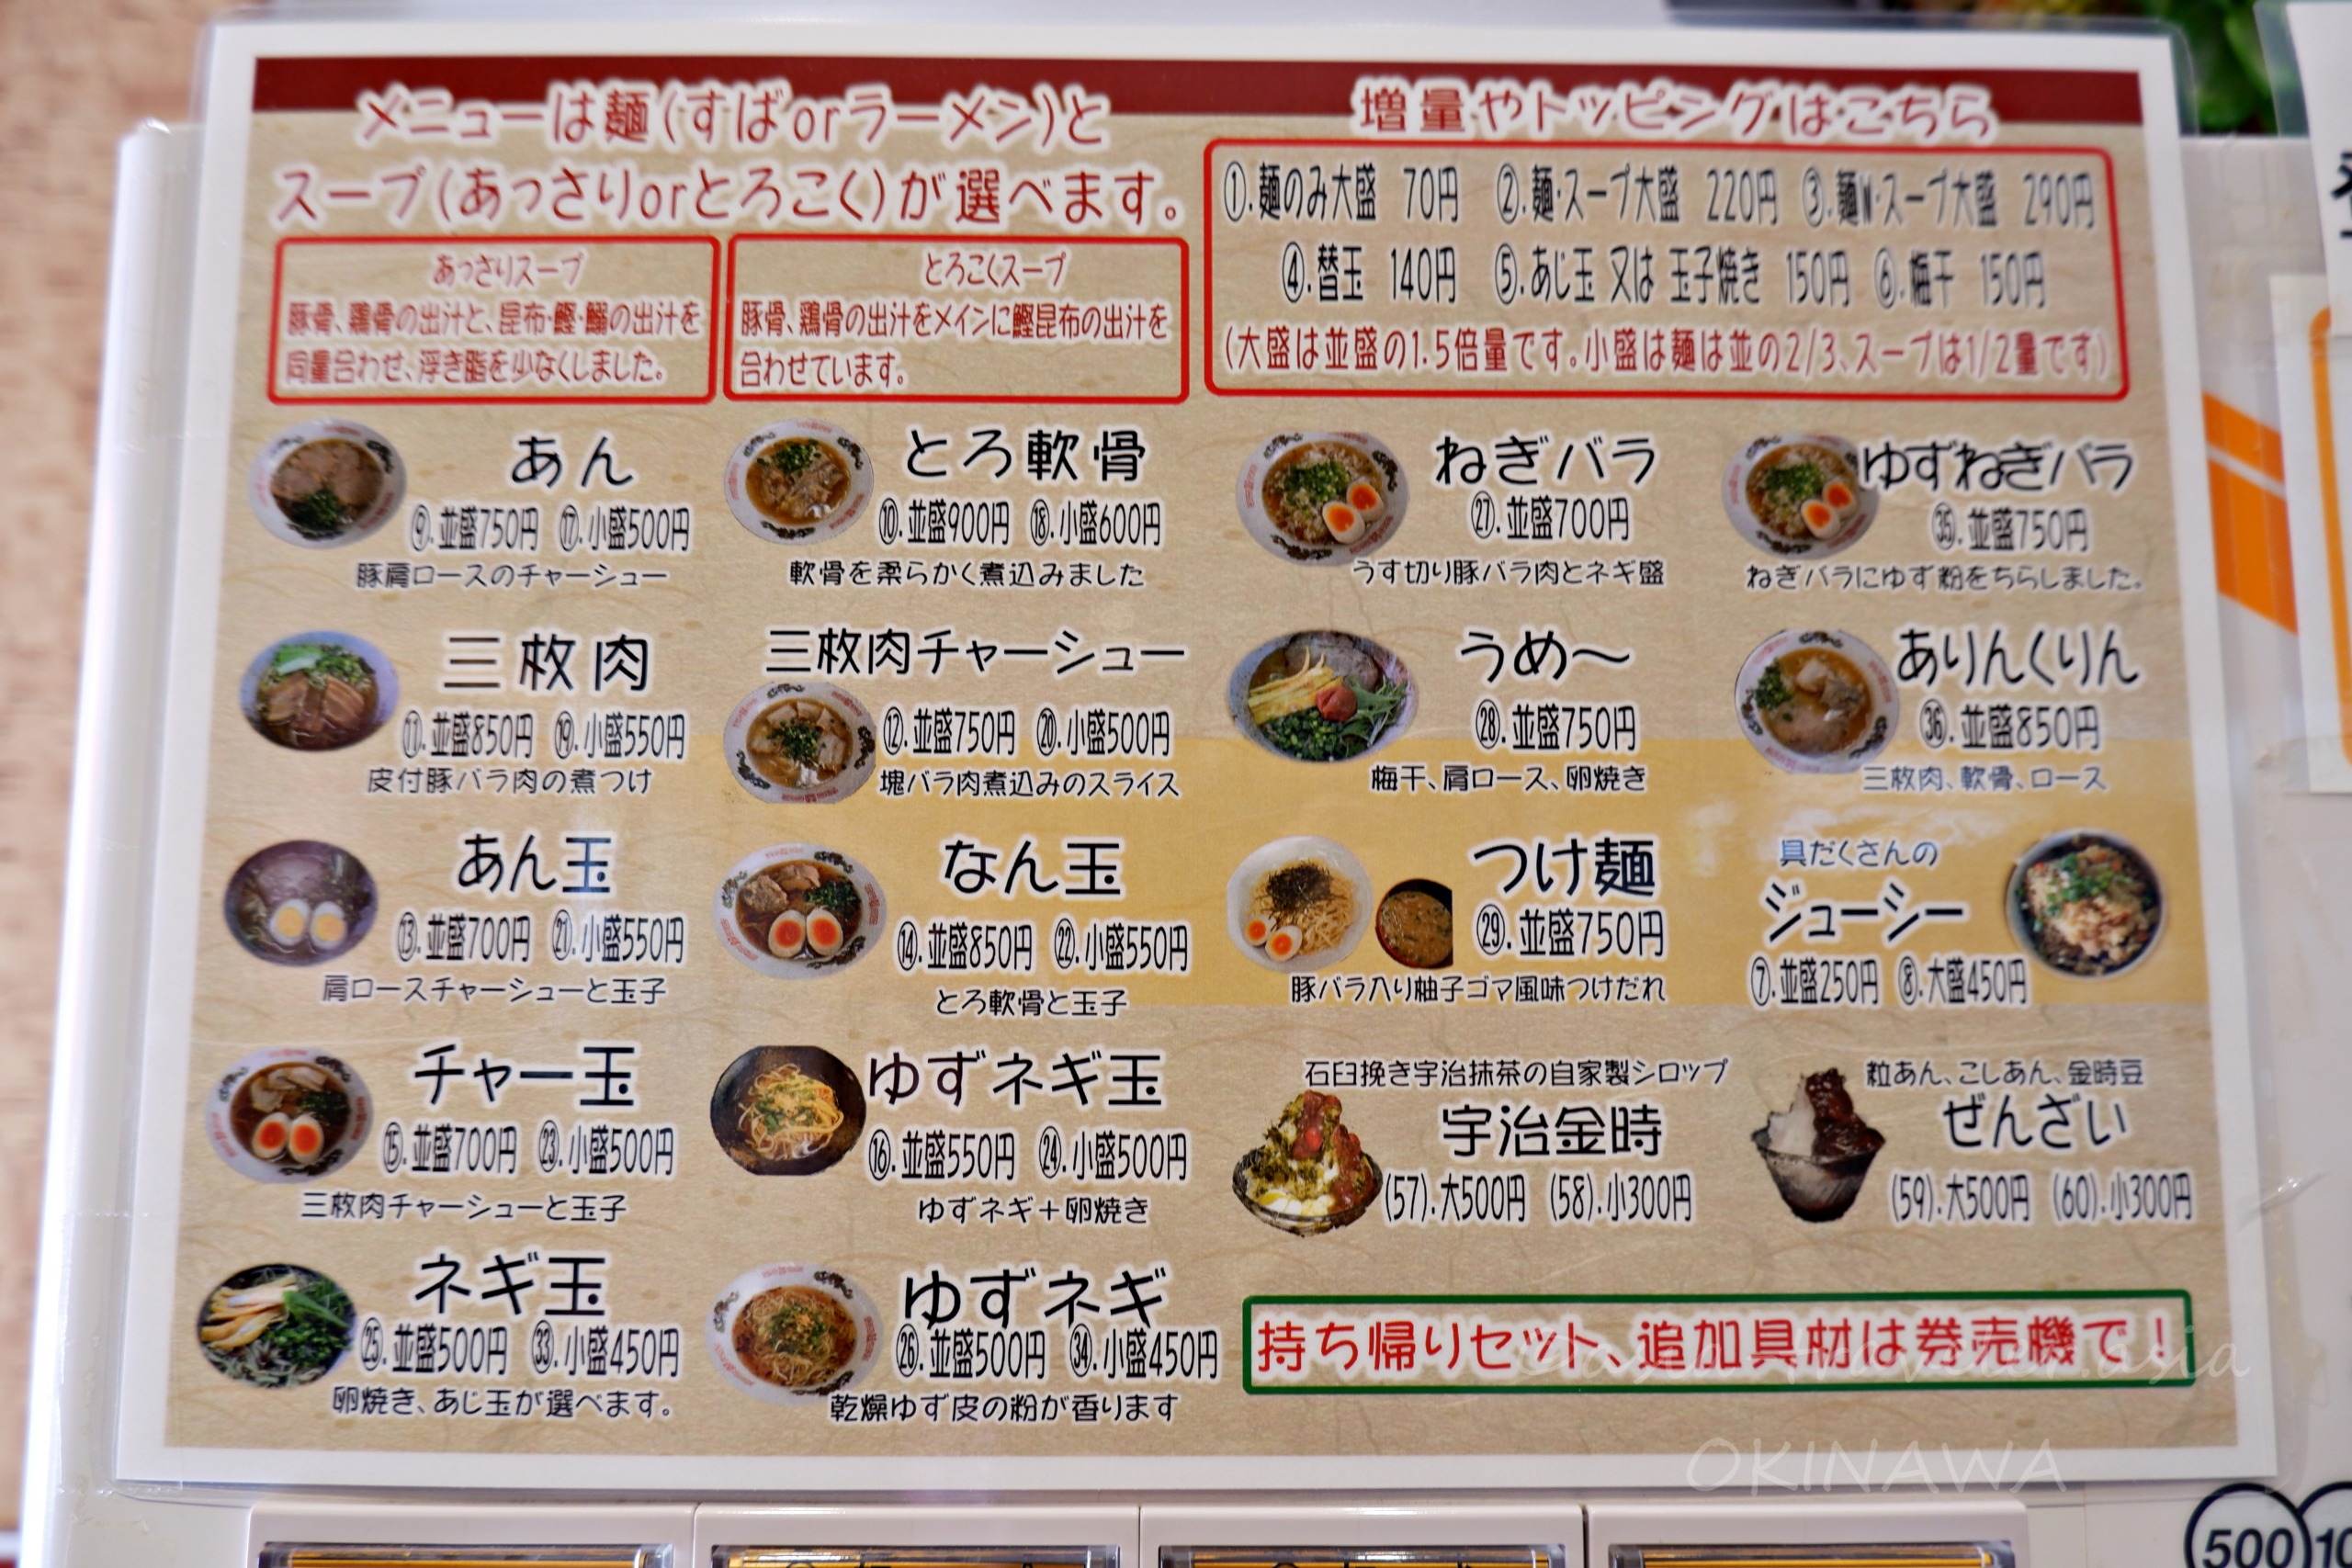 メニューは麺(すばorラーメン)と
スープ(あっさりorとろこく)が選べます。
あっさりスープ
豚骨、鶏骨の出汁と、昆布・鰹・鰯の出汁を
同量合わせ、浮き脂を少なくしました。
とろこくスープ
豚骨、鶏骨の出汁をメインに鰹昆布の出汁を
合わせています。
増量やトッピングはこちら
①.麺のみ大盛 70円 ②.麺・スープ大盛 220円 ③.麺W・スープ大盛 290円
④.替玉 140円 ⑤.あじ玉 又は 玉子焼き 150円 ⑥.梅干 150円
(大盛は並盛の1.5倍量です。小盛は麺は並の2/3、スープは1/2量です)
あん
⑨.並盛750円 ⑰.小盛500円
豚肩ロースのチャーシュー
とろ軟骨
⑩.並盛900円 ⑱.小盛600円
軟骨を柔らかく煮込みました
ねぎバラ
㉗.並盛700円
うす切り豚バラ肉とネギ盛
ゆずねぎバラ
㉟.並盛750円
ねぎバラにゆず粉をちらしました。
三枚肉
⑪.並盛850円 ⑲.小盛550円
皮付豚バラ肉の煮つけ
三枚肉チャーシュー
⑫.並盛750円 ⑳.小盛500円
塊バラ肉煮込みのスライス
うめ～
㉘.並盛750円
梅干、肩ロース、卵焼き
ありんくりん
㊱.並盛850円
三枚肉、軟骨、ロース
あん玉
⑬.並盛700円 ㉑.小盛550円
肩ロースチャーシューと玉子
なん玉
⑭.並盛850円 ㉒.小盛550円
とろ軟骨と玉子
つけ麺
㉙.並盛750円
豚バラ入り柚子ゴマ風味つけだれ
具だくさんの
ジューシー
⑦.並盛250円 ⑧.大盛450円
チャー玉
⑮.並盛700円 ㉓.小盛500円
三枚肉チャーシューと玉子
ゆずネギ玉
⑯.並盛550円 ㉔.小盛500円
ゆずネギ＋卵焼き
石臼挽き宇治抹茶の自家製シロップ
宇治金時
(57).大500円 (58).小300円
粒あん、こしあん、金時豆
ぜんざい
(59).大500円 (60).小300円
ネギ玉
㉕.並盛500円 ㉝.小盛450円
卵焼き、あじ玉が選べます。
ゆずネギ
㉖.並盛500円 ㉞.小盛450円
乾燥ゆず皮の粉が香ります
持ち帰りセット、追加具材は券売機で！
OKINAWA
500